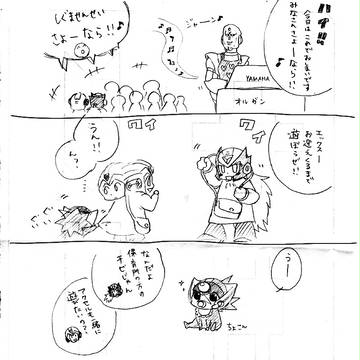 ハイ!!
今日はこれでおしまいです
みなさんさよーなら!!
ジャーン♪
しぐませんせい
さよーなら!!
YAMAHA
オルガン
ワイ
ワイ
エックスー
お迎えくるまで
遊ぼうぜ!!
うん!!
ん?
ぐい
ぐい
うー
ちょこん
なんだよ
保育所の方の
チビじゃん
アクセルも一緒に
遊びたいの?